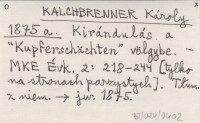 KALCHBRENNER Károly
1875 a. Kirándulás a
"Kupferschächten" völgybe. -
MKE Évk. 2: 218-244 [tylko
na stronach parzystych]. Tłum.
z niem. → jw. 1875.